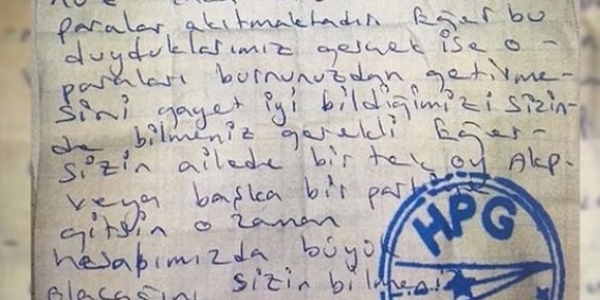 paralar akıtmaktadır Eğer bu
duyduklarımız gerçek ise o -
paraları burnunuzdan getirme-
sini gayet iyi bildiğimizi sizin-
de bilmeniz gerekli Eğer-
sizin ailede bir tek oy Akp-
veya başka bir
gitsin o zaman
HPG
hesabımızda büyük
olacağını sizin